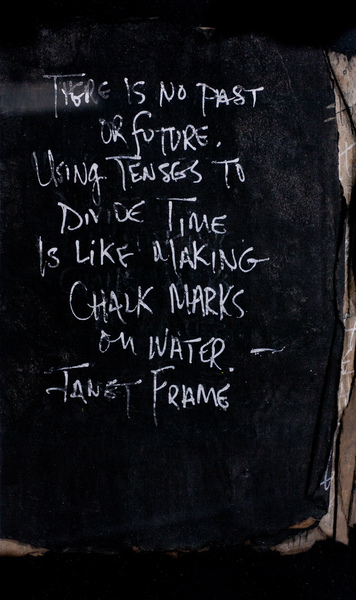 THERE IS NO PAST
OR FUTURE.
USING TENSES TO
DIVIDE TIME
IS LIKE MAKING
CHALK MARKS
ON WATER. —
JANET FRAME